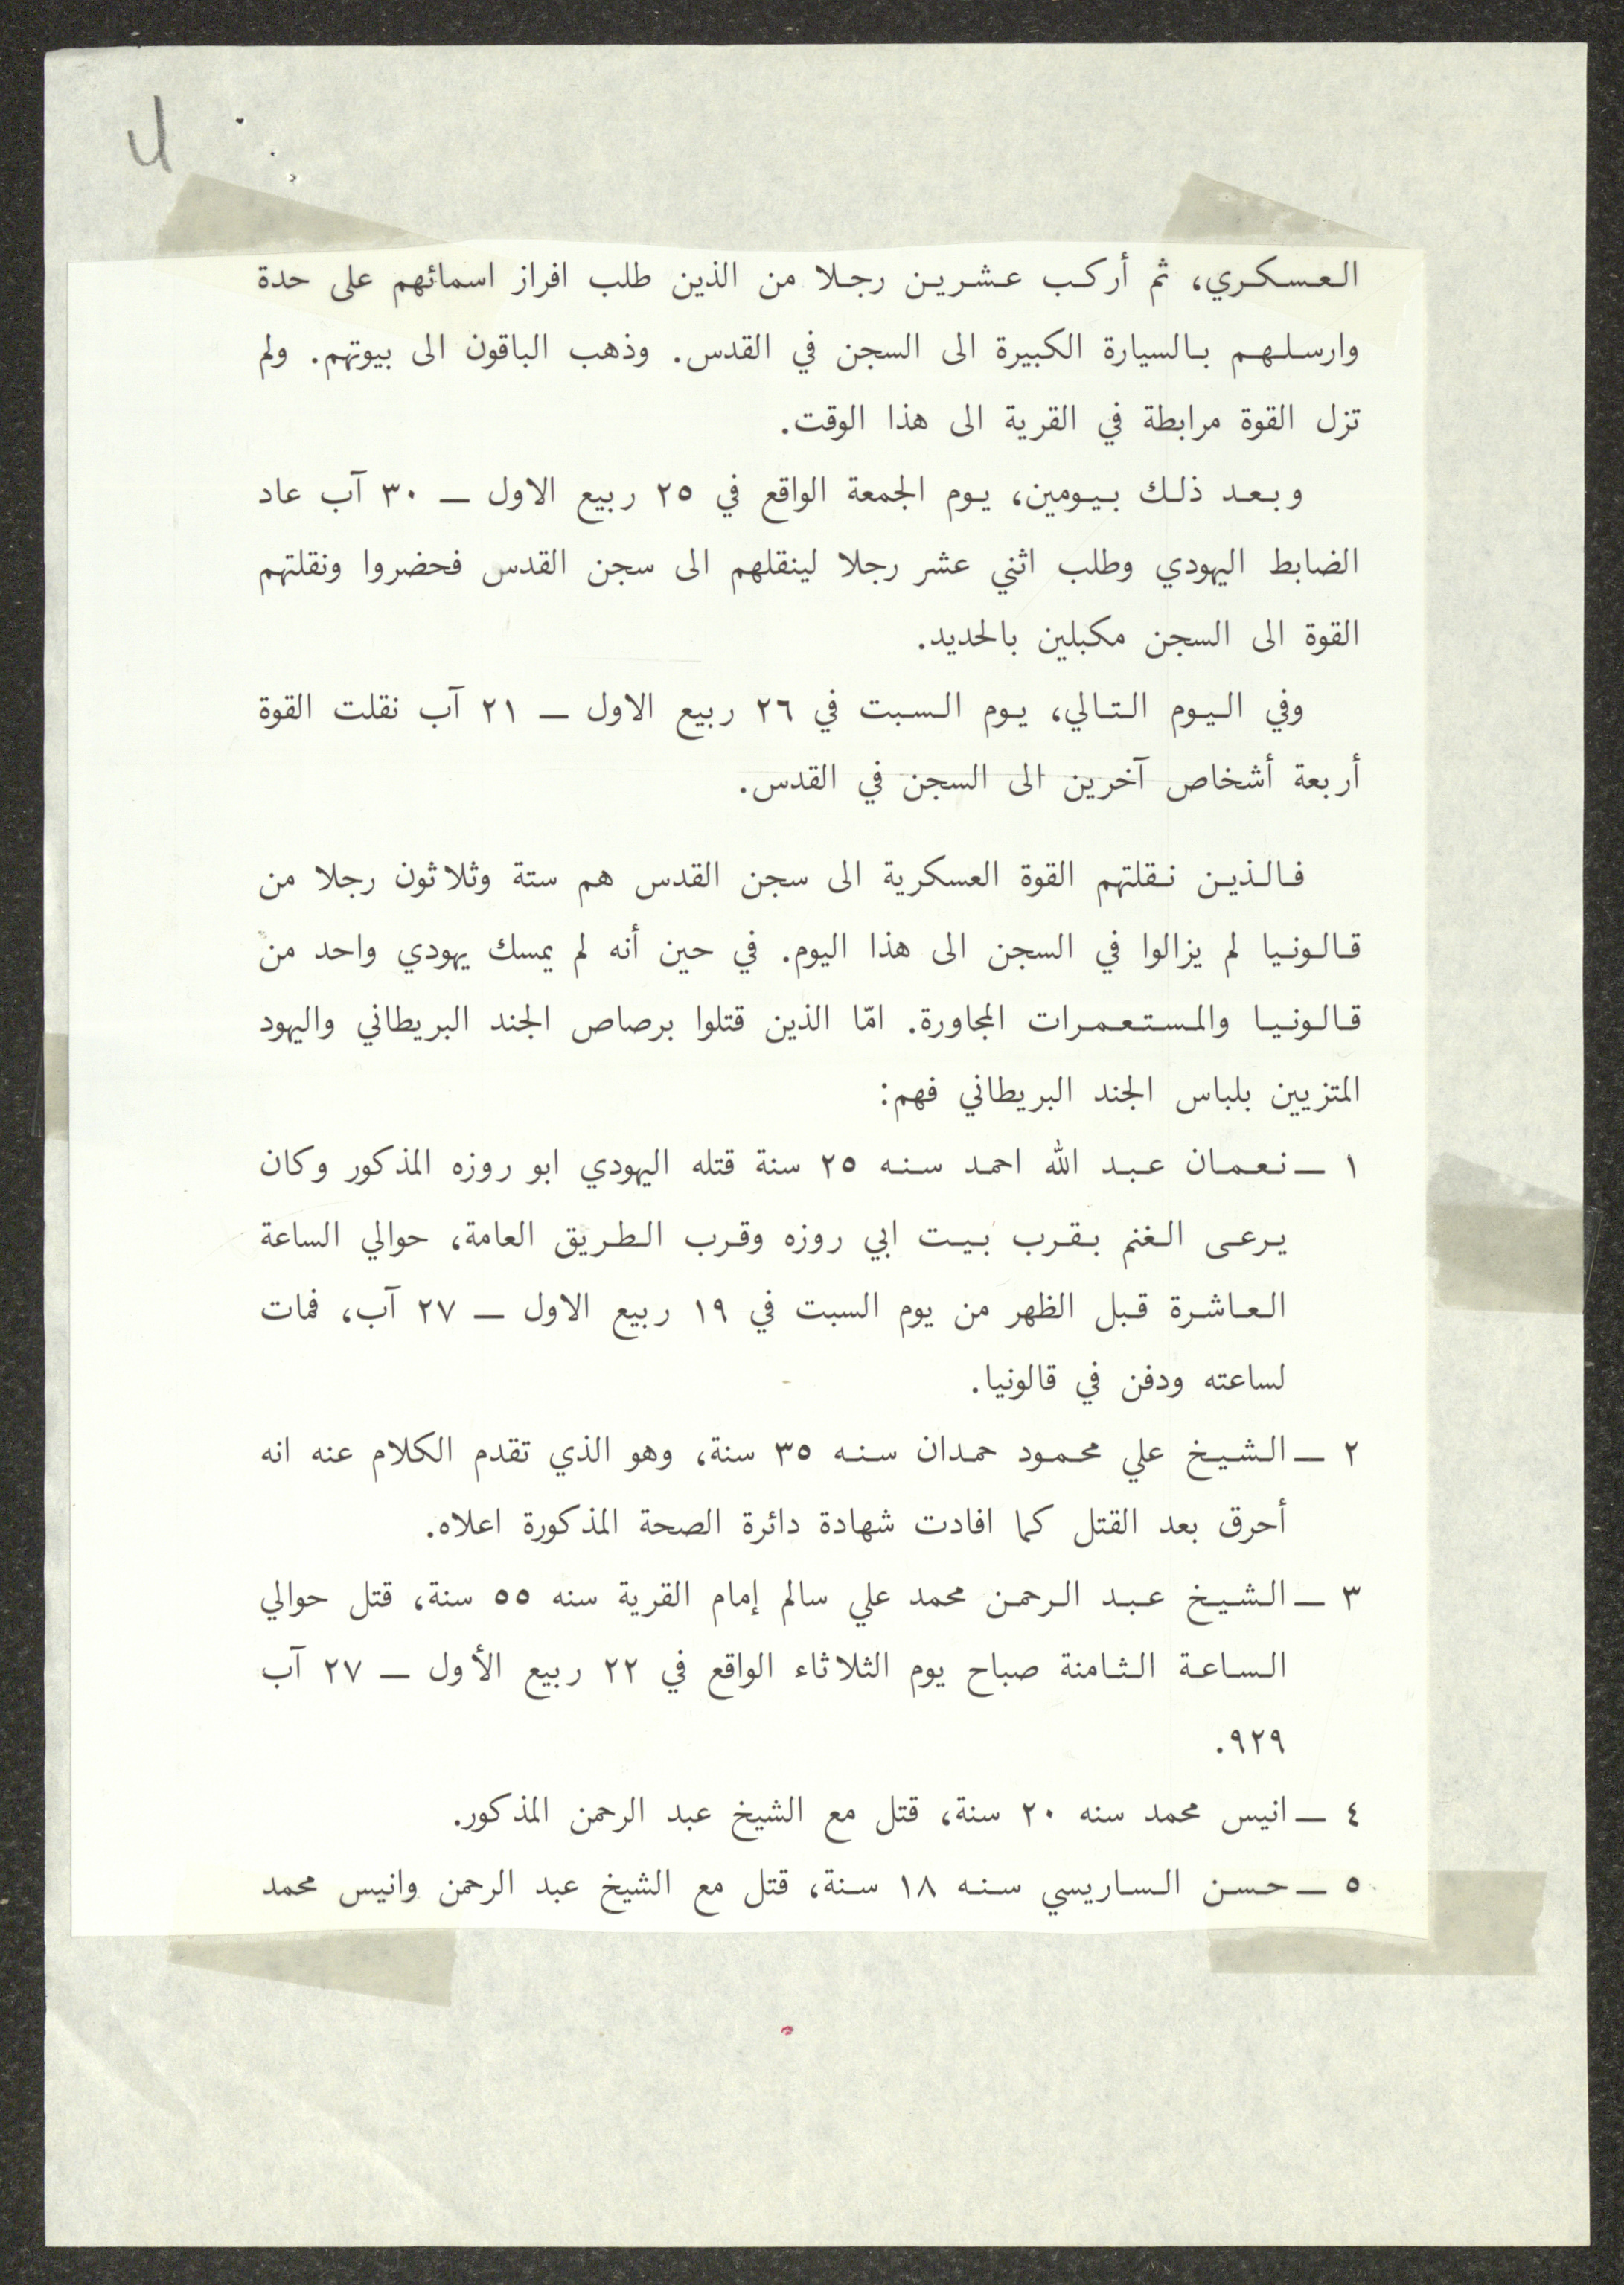 العسكري، ثم أركب عشرين رجلا من الذين طلب افراز اسمائهم على حدة
وارسلهم بالسيارة الكبيرة الى السجن في القدس. وذهب الباقون الى بيوتهم. ولم
تزل القوة مرابطة في القرية الى هذا الوقت.
وبعد ذلك بيومين، يوم الجمعة الواقع في ٢٥ ربيع الاول ــ ٣٠ آب عاد
الضابط اليهودي وطلب اثني عشر رجلا لينقلهم الى سجن القدس فحضروا ونقلتهم
القوة الى السجن مكبلين بالحديد.
وفي اليوم التالي، يوم السبت في ٢٦ ربيع الاول ــ ٢١ آب نقلت القوة
أربعة أشخاص آخرين الى السجن في القدس.
فالذين نقلتهم القوة العسكرية الى سجن القدس هم ستة وثلاثون رجلا من
قالونيا لم يزالوا في السجن الى هذا اليوم. في حين أنه لم يمسك يهودي واحد من
قالونيا والمستعمرات المجاورة. امّا الذين قتلوا برصاص الجند البريطاني واليهود
المتزيين بلباس الجند البريطاني فهم:
١ ــ نعمان عبد الله احمد سنه ٢٥ سنة قتله اليهودي ابو روزه المذكور وكان
يرعى الغنم بقرب بيت ابي روزه وقرب الطريق العامة، حوالي الساعة
العاشرة قبل الظهر من يوم السبت في ١٩ ربيع الاول ــ ٢٧ آب، فمات
لساعته ودفن في قالونيا.
٢ ــ الشيخ علي محمود حمدان سنه ٣٥ سنة، وهو الذي تقدم الكلام عنه انه
أحرق بعد القتل كما افادت شهادة دائرة الصحة المذكورة اعلاه.
٣ ــ الشيخ عبد الرحمن محمد علي سالم إمام القرية سنه ٥٥ سنة، قتل حوالي
الساعة الثامنة صباح يوم الثلاثاء الواقع في ٢٢ ربيع الأول ــ ٢٧ آب
٩٢٩.
٤ ــ انيس محمد سنه ٢٠ سنة، قتل مع الشيخ عبد الرحمن المذكور.
٥ ــ حسن الساريسي سنه ١٨ سنة، قتل مع الشيخ عبد الرحمن وانيس محمد